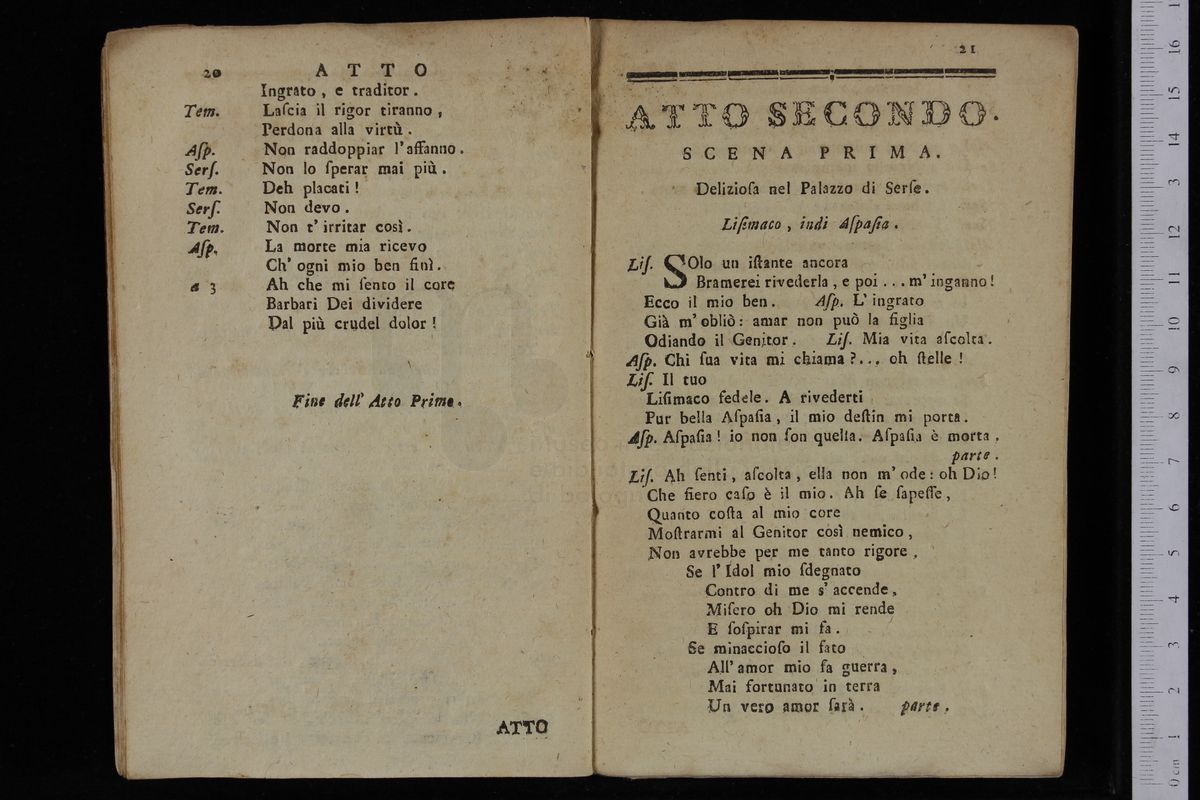 20 ATTO
Ingrato, e traditor.
Tem. Laſcia il rigor tiranno,
Perdona alla virtù.
Aſp. Non raddoppiar l'affanno.
Serſ. Non lo ſperar mai più.
Tem. Deh placati!
Serſ. Non devo.
Tem. Non t'irritar così.
Aſp. La morte mia ricevo
Ch'ogni mio ben finì.
a 3 Ah che mi ſento il core
Barbari Dei dividere
Dal più crudel dolor!
Fine dell'Atto Primo.
ATTO
21
ATTO SECONDO.
SCENA PRIMA.
Delizioſa nel Palazzo di Serſe.
Liſimaco, indi Aſpaſia.
Liſ. SOlo un iſtante ancora
Bramerei rivederla, e poi... m'inganno!
Ecco il mio ben. Aſp. L'ingrato
Già m'obliò: amar non può la figlia
Odiando il Genitor. Liſ. Mia vita aſcolta.
Aſp. Chi ſua vita mi chiama?... oh ſtelle!
Liſ. Il tuo
Liſimaco fedele. A rivederti
Pur bella Aſpaſia, il mio deſtin mi porta.
Aſp. Aſpaſia! io non ſon quella. Aſpaſia è morta.
parte.
Liſ. Ah ſenti, aſcolta, ella non m'ode: oh Dio!
Che fiero caſo è il mio. Ah ſe ſapeſſe,
Quanto coſta al mio core
Moſtrarmi al Genitor così nemico,
Non avrebbe per me tanto rigore.
Se l'Idol mio ſdegnato
Contro di me s'accende,
Miſero oh Dio mi rende
E ſoſpirar mi fa.
Se minaccioſo il fato
All'amor mio fa guerra,
Mai fortunato in terra
Un vero amor ſarà. parte.
0 cm 1 2 3 4 5 6 7 8 9 10 11 12 13 14 15 16